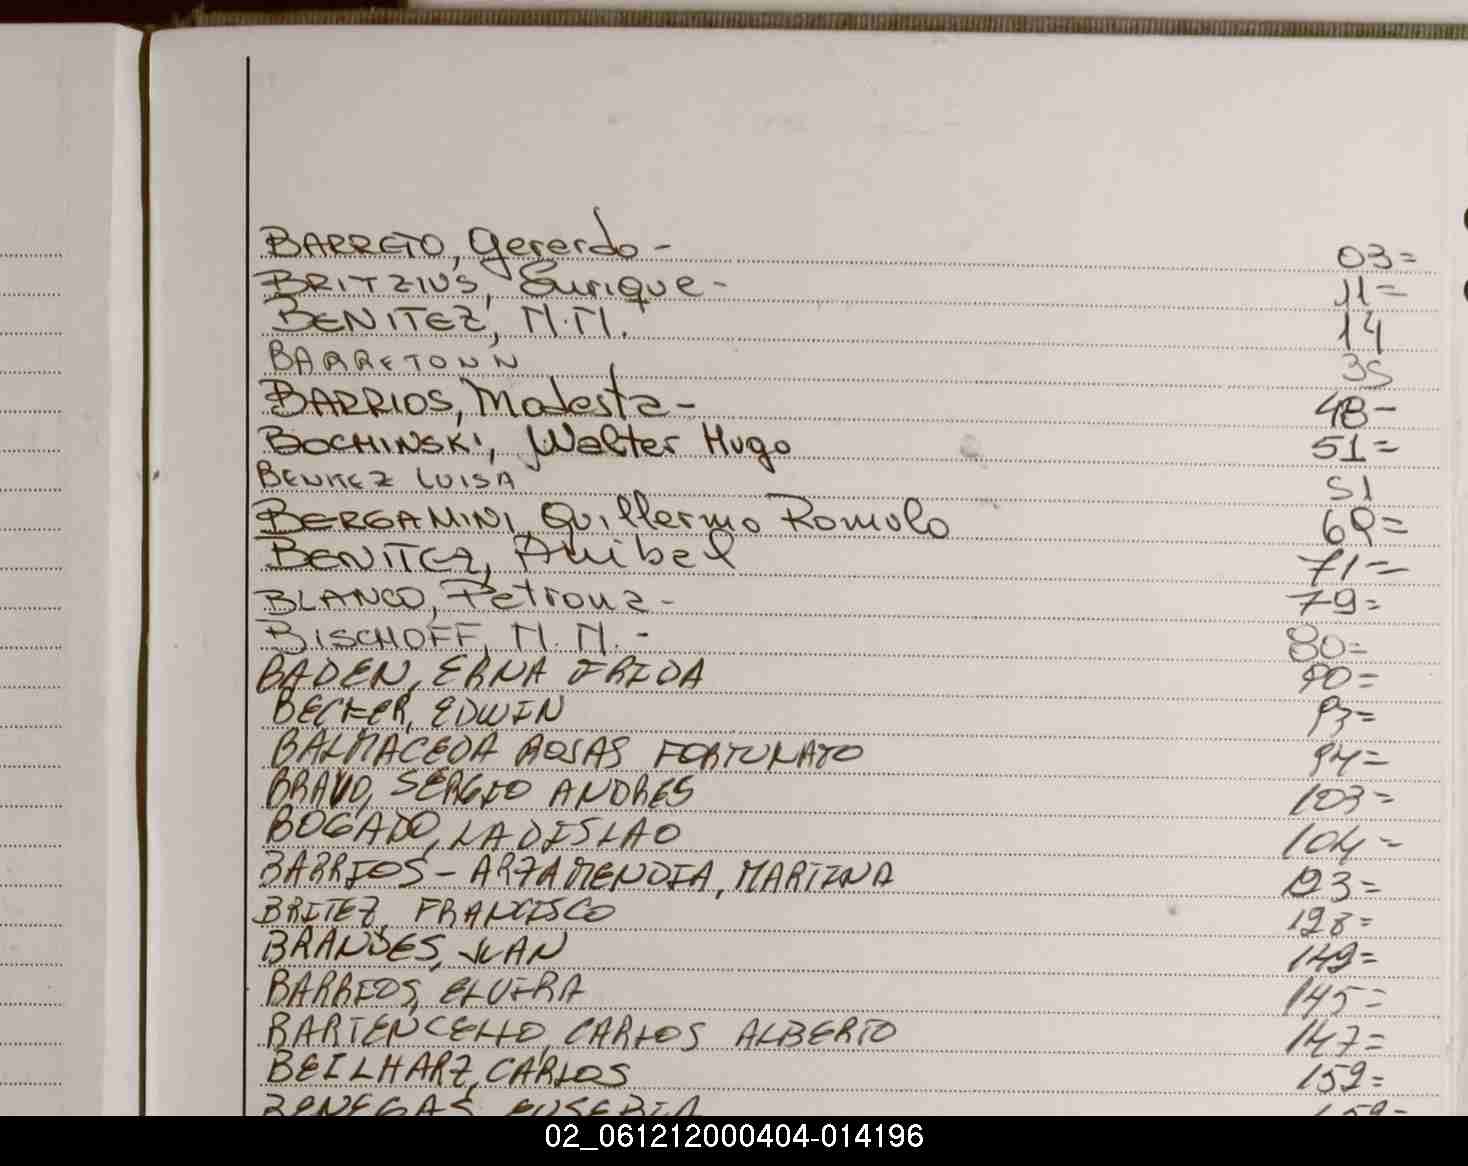 BARRETO, Gererdo - 03=
BRITZIUS, Enrique - 11=
BENITEZ, M.M. 14
BARRETO N N 35
BARRIOS, Modesta - 48-
BOCHINSKI, Walter Hugo 51=
BENITEZ LUISA 51
BERGAMINI, Guillermo Romulo 69=
BENITEZ, Anibal 71=
BLANCO, Petrona - 79=
BISCHOFF, M.M. - 80=
BADEN, ERNA FRIDA 90=
BECKER, EDWIN 93=
BALMACEDA ROSAS FORTUNATO 94=
BRAVO, SERGIO ANDRES 103=
BOGADO, LADISLAO 104=
BARRIOS - ARZAMENDIA, MARTINA 123=
BRITEZ, FRANCISCO 128=
BRANDES, JUAN 142=
BARRIOS, ELVIRA 145=
BARTENCELLO, CARLOS ALBERTO 147=
BEILHARZ, CARLOS 152=
BENEGAS, EUSEBIA
02_061212000404-014196